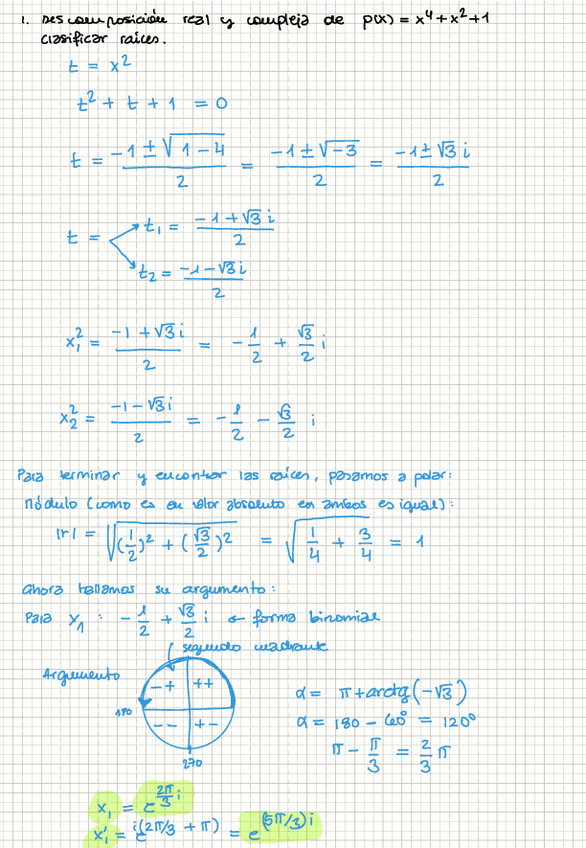 1. Descomposición real y compleja de p(x) = x⁴ + x² + 1
Clasificar raíces.
t = x²
t² + t + 1 = 0
t = (-1 ± √(1-4))/2 = (-1 ± √-3)/2 = (-1 ± √3 i)/2
t = t₁ = (-1 + √3 i)/2
t₂ = (-1 - √3 i)/2
x₁² = (-1 + √3 i)/2 = -1/2 + √3/2 i
x₂² = (-1 - √3 i)/2 = -1/2 - √3/2 i
Para terminar y encontrar las raíces, pasamos a polar:
Módulo (como es en valor absoluto en ambos es igual):
|r| = √((1/2)² + (√3/2)²) = √(1/4 + 3/4) = 1
Ahora hallamos su argumento:
Para x₁ : -1/2 + √3/2 i ← forma binomial
segundo cuadrante
Argumento
- + ++
180
- - + -
270
α = π + arctg(-√3)
α = 180 - 60° = 120°
π - π/3 = 2/3 π
x₁ = e^(2π/3 i)
x₁' = e^(i(2π/3 + π)) = e^((5π/3) i)